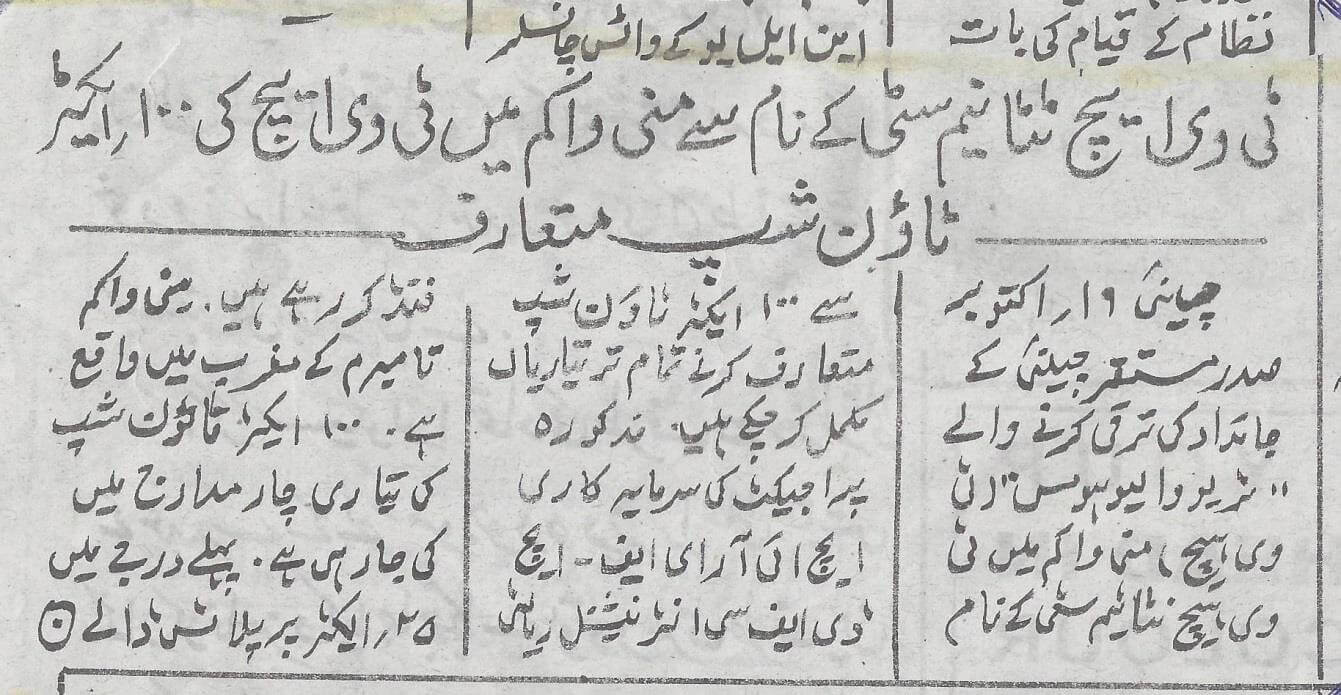 نظام کے قیام کی بات
این ایل یو کے وائس چانسلر
ٹی وی ایچ ٹٹانیم سٹی کے نام سے منی واکم میں ٹی وی ایچ کی ۱۰۰؍ایکڑ
ٹاؤن شپ متعارف
چینئی ۱۹؍اکتوبر
صدر مستقر چینئی کے
جائداد کی ترقی کرنے والے
"ٹریو والیو ہومس" (ٹی
وی ایچ) منی واکم میں ٹی
وی ایچ ٹٹانیم سٹی کے نام
سے ۱۰۰ ایکڑ ٹاون شپ
متعارف کرنے تمام تر تیاریاں
مکمل کرچکے ہیں۔ مذکورہ
پراجیکٹ کی سرمایہ کاری
ایچ ائی آر ای ایف - ایچ
ڈی ایف سی انٹرنیشنل ریالٹی
فنڈ کررہے ہیں۔ منی واکم
تامبرم کے مغرب میں واقع
ہے۔ ۱۰۰ ایکڑ ٹائون شپ
کی تیاری چار مدارج میں
کی جارہی ہے۔ پہلے درجے میں
۲۵؍ایکٹر پر پلاٹس ڈالے